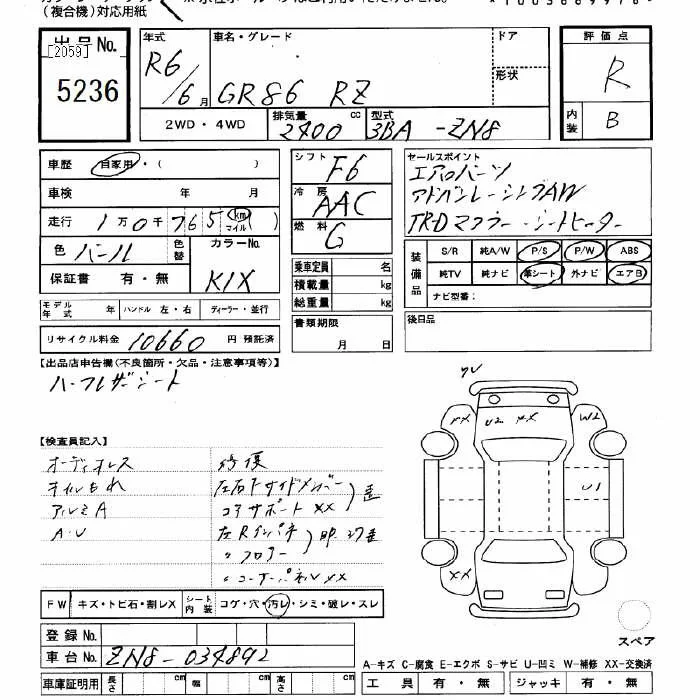 (複合機)対応用紙
出品No.
[2059]
5236
年式
R6/6月
車名・グレード
GR86 RZ
ドア
形状
評価点
R
内装
B
2WD・4WD
排気量
2400 cc
型式
3BA-ZN8
車歴
自家用・( )
車検 年 月
走行 1万0千765 km マイル ( )
色 パール
色替
カラーNo.
K1X
保証書 有・無
シフト F6
冷房 AAC
燃料 G
乗車定員 名
積載量 kg
総重量 kg
セールスポイント
エアロパーツ
アドバンレーシングAW
TRDマフラー・シートヒーター
装備品
S/R 純A/W P/S P/W ABS
純TV 純ナビ 革シート 外ナビ エアB
ナビ型番:
モデル年式 年
ハンドル 左・右
ディーラー・並行
リサイクル料金 10660 円 預託済
書類期限
月 日
後日品
【出品店申告欄(不良箇所・欠品・注意事項等)】
ハーフレザーシート
【検査員記入】
オーディオレス
オイルもれ
アルミA
A・U
修復
左右Fサイドメンバー
コアサポートXX
左Rインパネ
〃フロアー
〃コーナーパネルXX
XX
U2
XX
W2
U1
XX
FW キズ・トビ石・割レX
シート内装 コゲ・穴・汚レ・シミ・破レ・スレ
登録No.
車台No. ZN8-034892
車庫証明用 長さ cm 幅 cm 高さ cm
スペア
A-キズ C-腐食 E-エクボ S-サビ U-凹ミ W-補修 XX-交換済
工具 有・無 ジャッキ 有・無